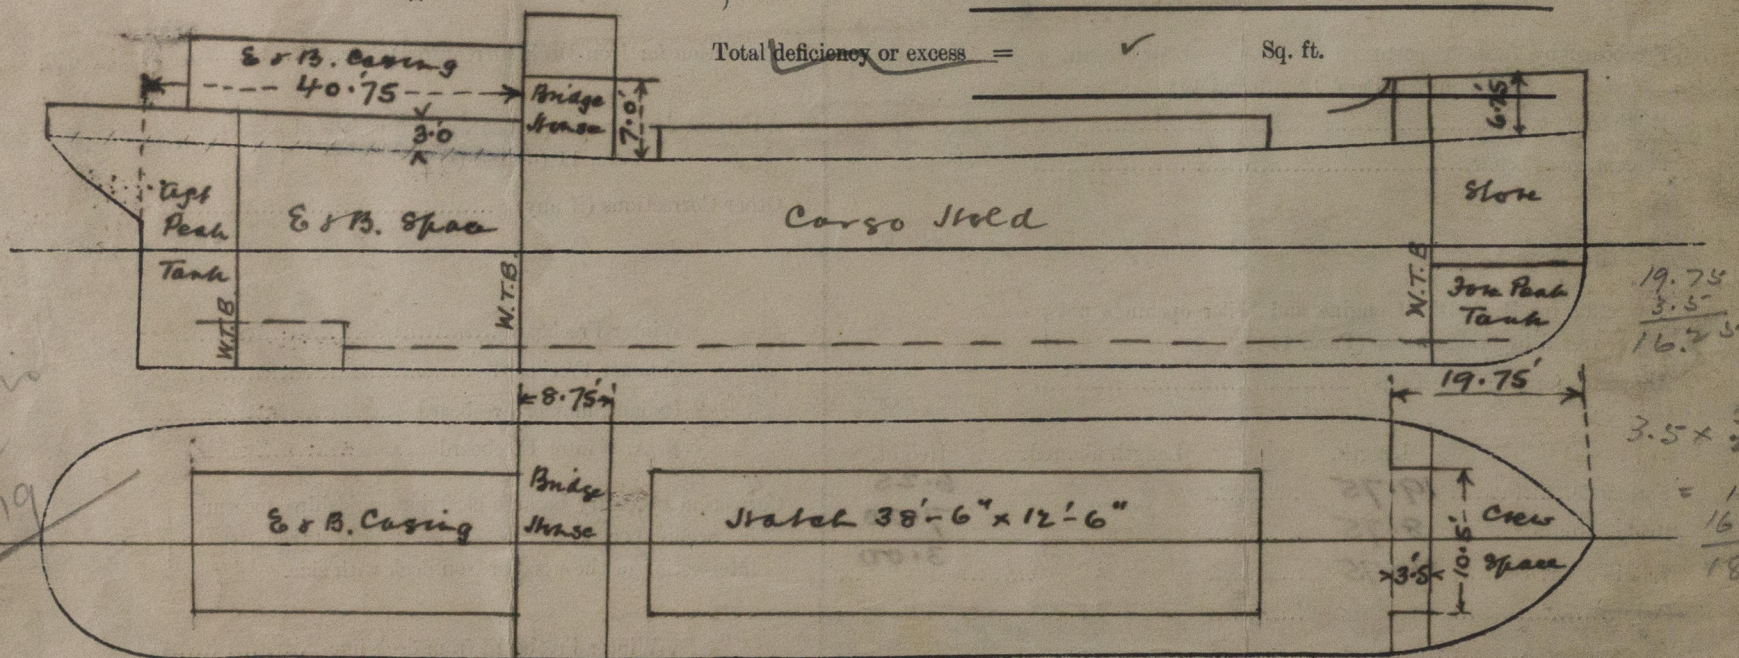 Total deficiency or excess = ✓ Sq. ft.
E & B. Casing
40.75
Bridge
House
7.0'
3.0
6.75'
Aft
Peak
Tank
E & B. Space
Cargo Hold
Store
Fore Peak
Tank
W.T.B.
W.T.B.
W.T.B
19.75
3.5
16.25
8.75'
19.75'
3.5 ×
E & B. Casing
Bridge
House
Hatch 38'-6" x 12'-6"
3.5
10.5'
Crew
Space